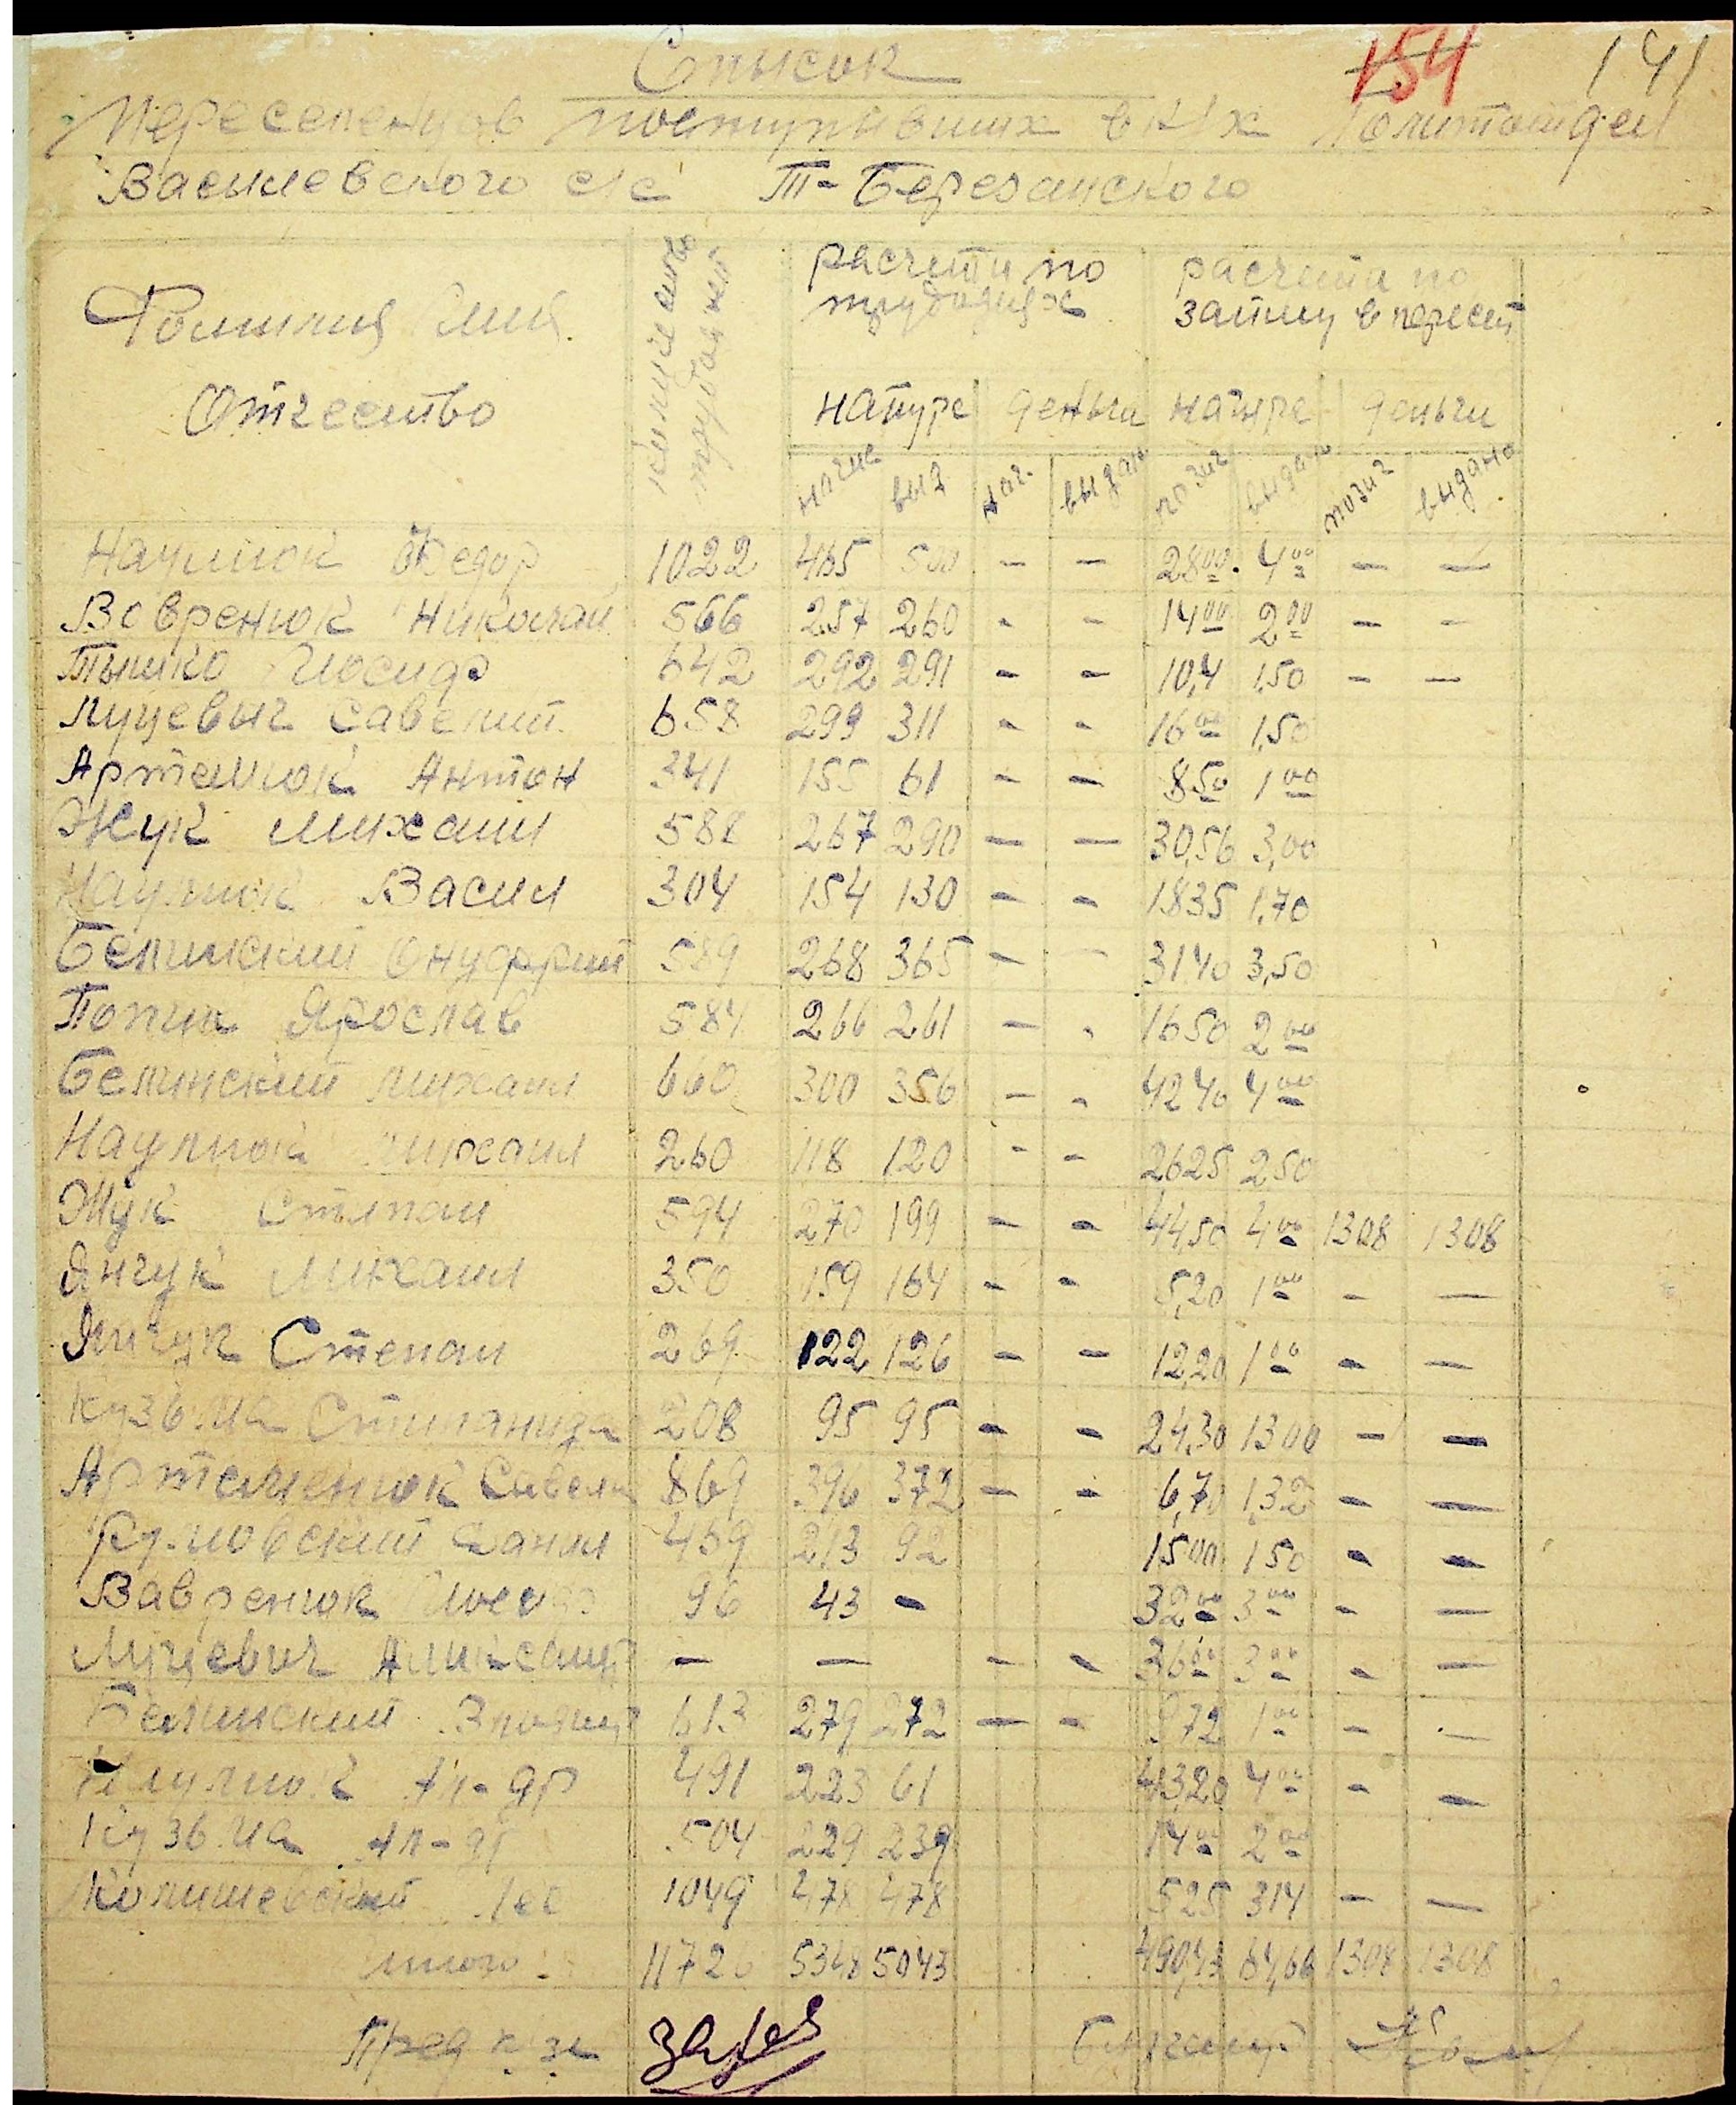 Список 154 141
Переселенцов поступивших в к/х Политотдел
Васылевского с/с Т-Березанского
Фамилия Имя Отчество
количество трудодней
расчеты по трудодням
расчета по затину в пересел
натуре деньги натуре деньги
начис выд нач. выдан позич выдан позич выдано
Наумюк Федор 1022 465 500 - - 28 00 4 00 - -
Вавренюк Николай 566 257 260 - - 14 00 2 00 - -
Тымко Иосиф 642 292 291 - - 10,4 1,50 - -
Луцевыч Савелий 658 299 311 - - 16 00 1,50
Артемюк Антон 341 155 61 - - 8 50 1 00
Жук Михаил 588 267 290 - - 30,56 3,00
Наумюк Васил 304 154 130 - - 1835 1,70
Белинский Онуфрий 589 268 365 - - 3140 3,50
Попик Ярослав 584 266 261 - - 1650 2 00
Белинский Михаил 660 300 356 - - 4240 4 00
Наумюк Михаил 260 118 120 - - 2625 250
Жук Стипан 594 270 199 - - 44,50 4 00 1308 1308
Янчук Михаил 350 159 164 - - 5,20 1 00 - -
Янчук Степан 269 122 126 - - 12,20 1 00 - -
Кузьма Стипанида 208 95 95 - - 24,30 1300 - -
Артеменюк Савели 869 396 372 - - 6,70 1,32 - -
Данил 469 213 92 1500 150 - -
Вавренюк Иосиф 96 43 - 32 00 3 00 - -
Луцевич Аликсандр - - - - 36 00 3 00 - -
Белинский 613 279 272 - - 972 1 00 - -
Наумюк Ал-др 491 223 61 43,20 4 00 - -
Кузьма Ал-др 504 229 239 14 00 2 00
1049 478 478 525 314 - -
итого: 11720 5348 5043 490,43 64,66 1308 1308
Пред к-за